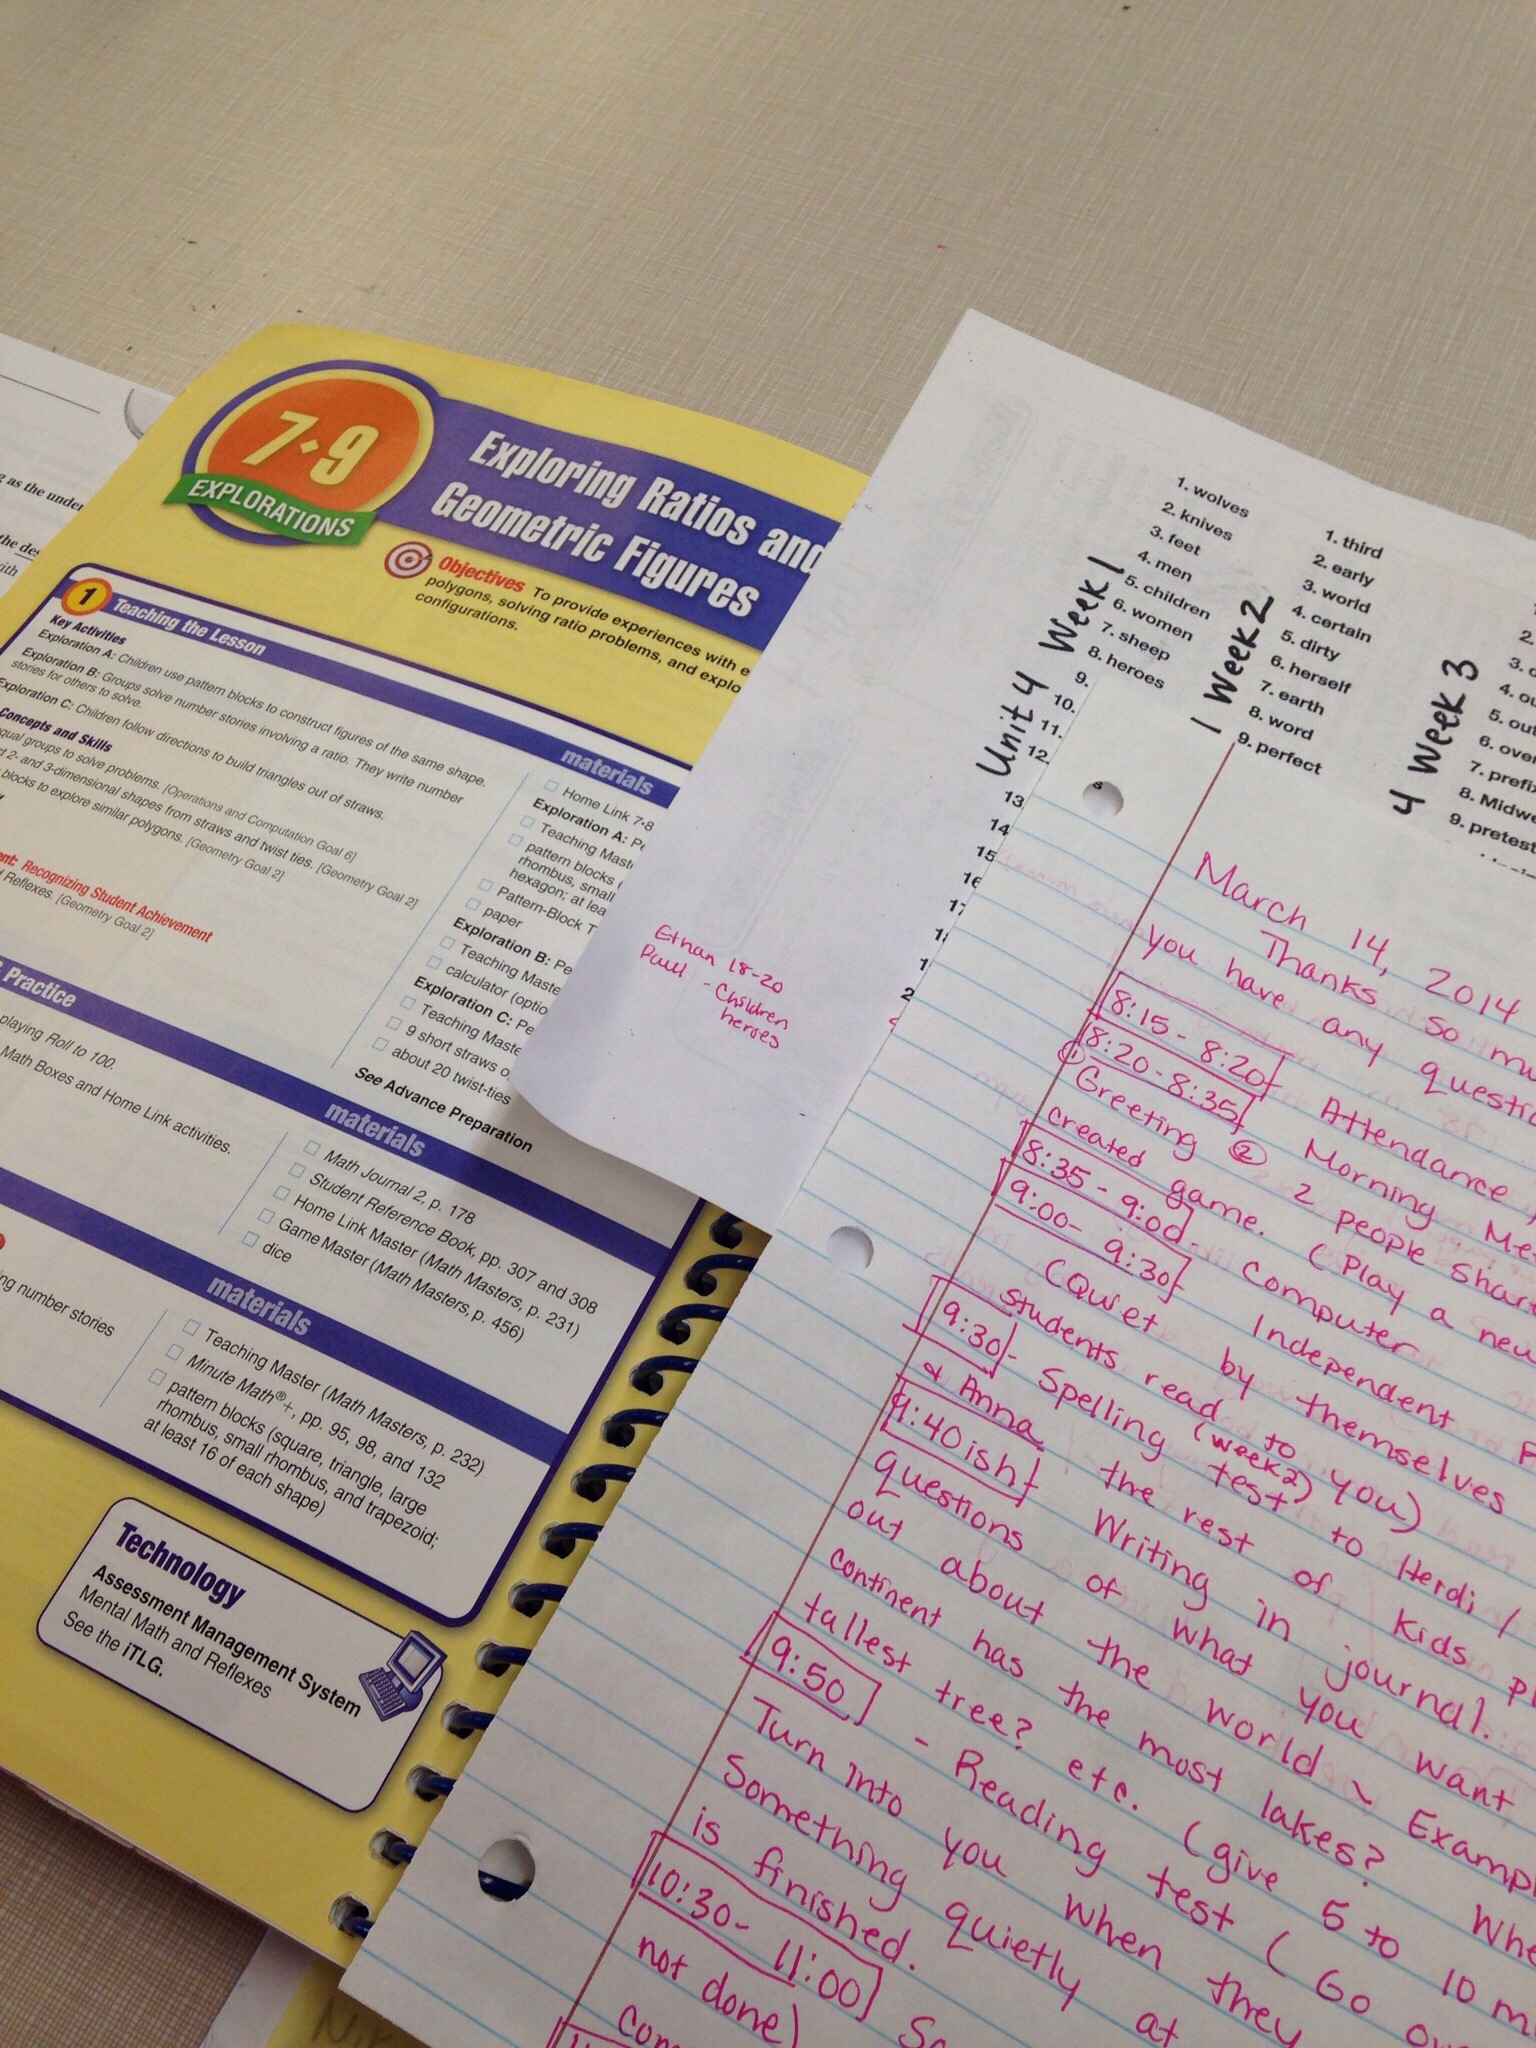 g as the under
the des
ith
7•9
EXPLORATIONS
Exploring Ratios and
Geometric Figures
Objectives To provide experiences with
polygons, solving ratio problems, and explo
configurations.
1 Teaching the Lesson
Key Activities
Exploration A: Children use pattern blocks to construct figures of the same shape.
Exploration B: Groups solve number stories involving a ratio. They write number
stories for others to solve.
Exploration C: Children follow directions to build triangles out of straws.
Concepts and Skills
equal groups to solve problems. [Operations and Computation Goal 6]
ct 2- and 3-dimensional shapes from straws and twist ties. [Geometry Goal 2]
blocks to explore similar polygons. [Geometry Goal 2]
ent: Recognizing Student Achievement
d Reflexes. [Geometry Goal 2]
materials
Home Link 7•8
Exploration A: Pe
Teaching Maste
pattern blocks (
rhombus, small
hexagon; at lea
Pattern-Block T
paper
Exploration B: Pe
Teaching Maste
calculator (optio
Exploration C: Pe
Teaching Maste
9 short straws o
about 20 twist-ties
See Advance Preparation
Practice
playing Roll to 100.
Math Boxes and Home Link activities.
materials
Math Journal 2, p. 178
Student Reference Book, pp. 307 and 308
Home Link Master (Math Masters, p. 231)
Game Master (Math Masters, p. 456)
dice
ing number stories
materials
Teaching Master (Math Masters, p. 232)
Minute Math®+, pp. 95, 98, and 132
pattern blocks (square, triangle, large
rhombus, small rhombus, and trapezoid;
at least 16 of each shape)
Technology
Assessment Management System
Mental Math and Reflexes
See the iTLG.
Ethan 18-20
Paul - Children
heroes
Unit 4 Week 1
1. wolves
2. knives
3. feet
4. men
5. children
6. women
7. sheep
8. heroes
9.
10.
11.
12.
13
14
15
16
17
1 Week 2
1. third
2. early
3. world
4. certain
5. dirty
6. herself
7. earth
8. word
9. perfect
4 Week 3
2.
3.
4. ou
5. out
6. over
7. prefix
8. Midwe
9. pretest
March 14, 2014
Thanks so mu
you have any questi
8:15 - 8:20 Attendance,
8:20 - 8:35 Morning Me
① Greeting ② 2 people share
created game. (Play a new
8:35 - 9:00 Computer
9:00 - 9:30 Independent
(Quiet by themselves
students read to you)
9:30 - Spelling (week 2) test to Heidi /
& Anna the rest of kids
9:40 ish Writing in journal.
questions of what you want
out about the world. Exampl
continent has the most lakes?
tallest tree? etc. (give 5 to 10 m
9:50 - Reading test (Go ov
Turn into you when they
Something quietly at
is finished.
10:30 - 11:00
not done)